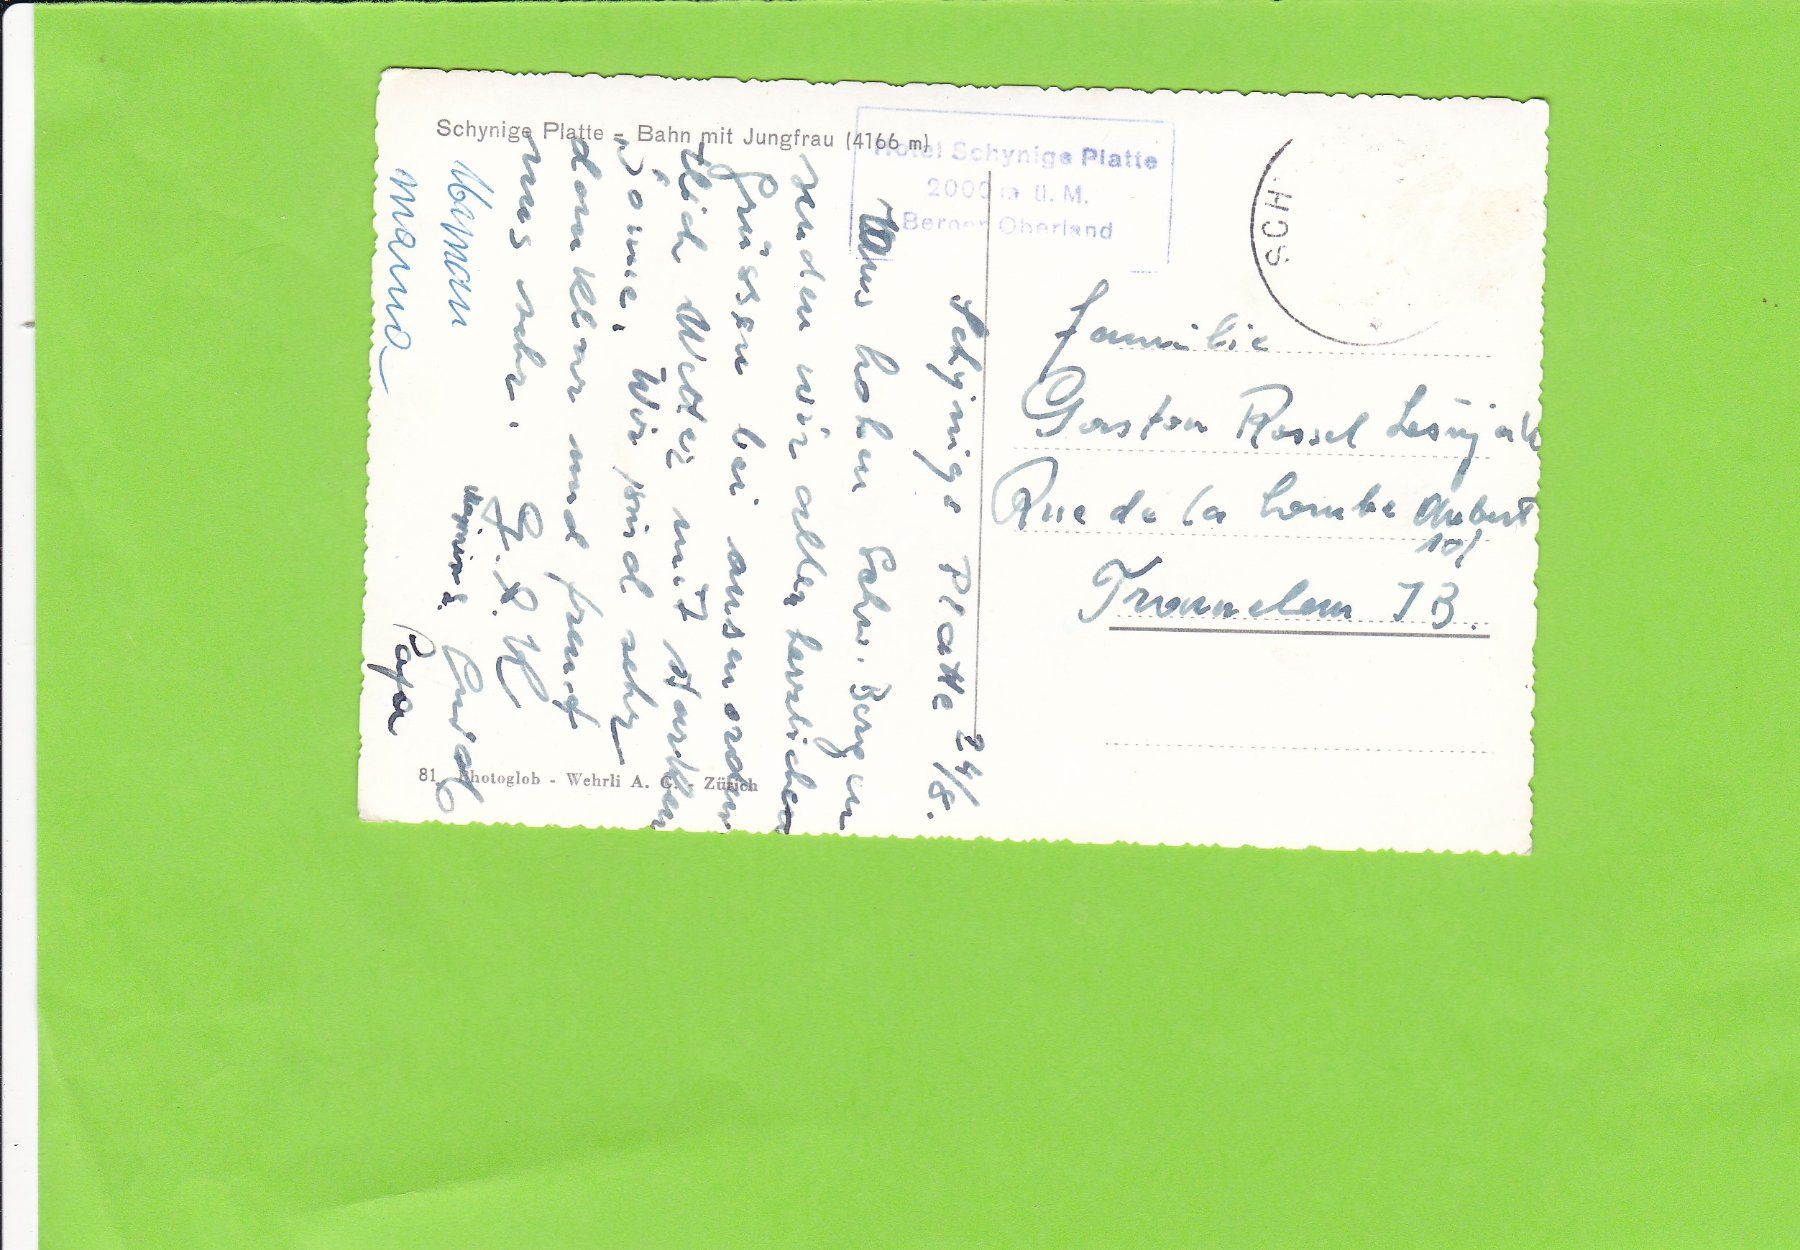 Schynige Platte - Bahn mit Jungfrau (4166 m)
Hotel Schynige Platte
2000 m ü. M.
Berner Oberland
SCH
Schynige Platte 24/8.
hohen Schw. Bergen
senden wir allen herzlichen
Grüssen bei ausserorden
tlich Wetter mit starken
Sonne. Wir sind sehr
dankbar und freut
uns sehr.
Mama
Papa
Familie
Gaston Rossel
Rue de la Combe Aubert
10
Tramelan JB.
81 Photoglob - Wehrli A. G. - Zürich